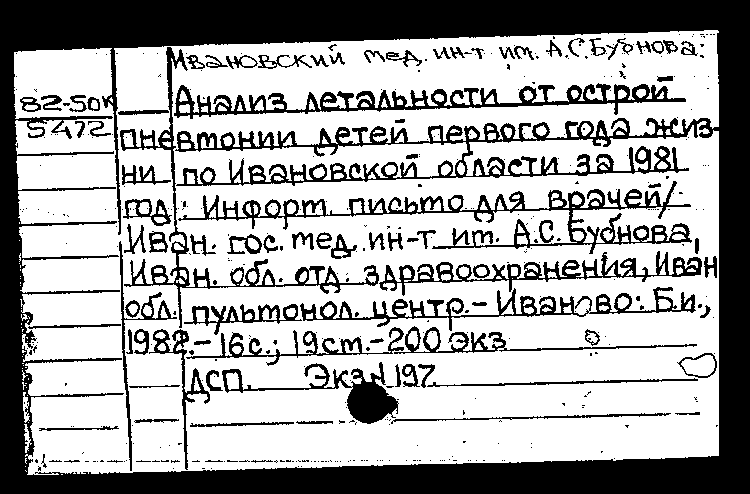 Ивановский мед. ин-т им. А.С.Бубнова:
82-50к
5472
Анализ летальности от острой
пневмонии детей первого года жиз-
ни по Ивановской области за 1981
год: Информ. письмо для врачей/
Иван. гос. мед. ин-т им. А.С. Бубнова,
Иван. обл. отд. здравоохранения, Иван
обл. пульмонол. центр.- Иваново: Б.и.,
1982.- 16с.; 19см.-200 экз
ДСП. Экз N 197.